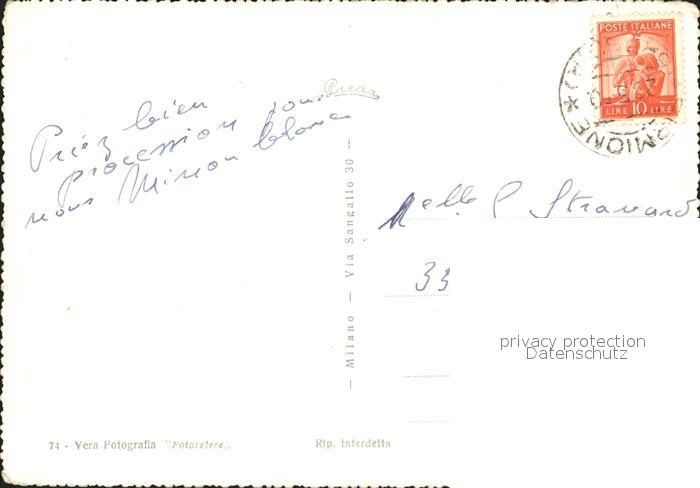 POSTE ITALIANE
LIRE 10 LIRE
MIONE
Priéz bien
procession pour
nous
Melle Stravard
33
Milano — Via Sangallo 30 —
privacy protection
Datenschutz
74 - Vera Fotografia "Fotocelere„
Rip. interdetta